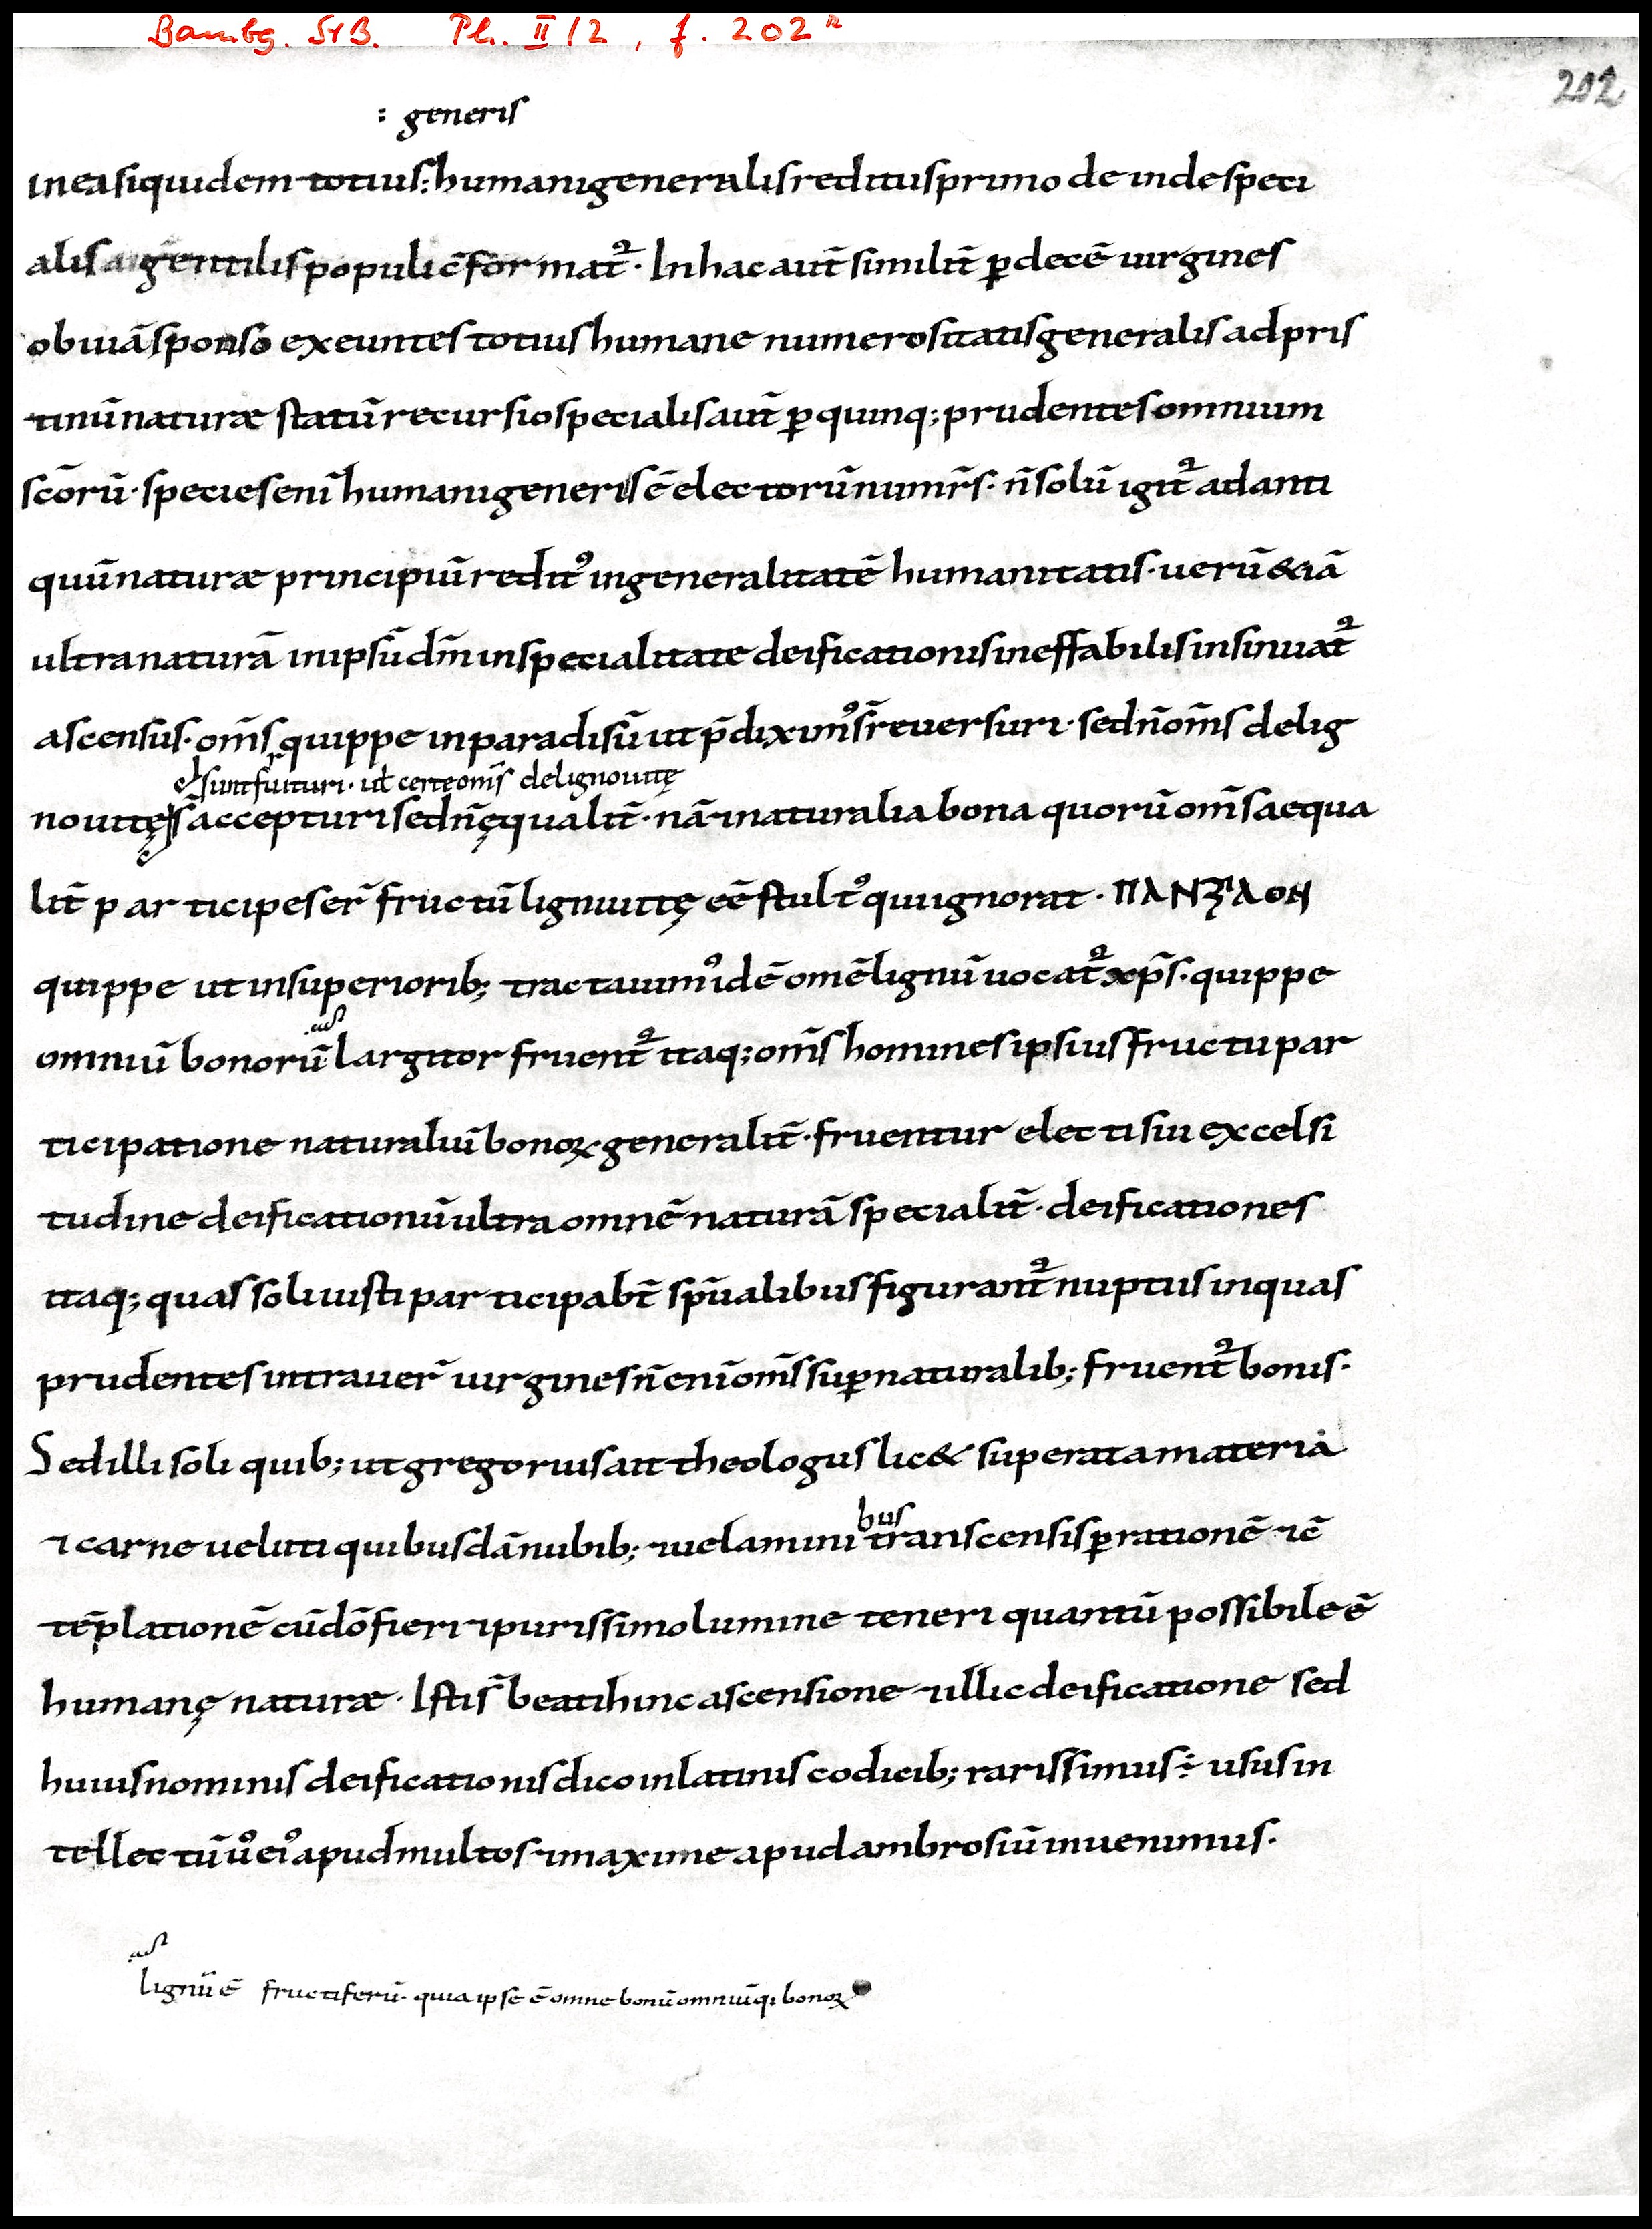 Bambg. StB. Ph. II/2, f. 202r
202
: generis
in ea siquidem totius: humani generalis reditus primo deinde speci
alis a gentilis populi c̄format᷑. In hac aut̄ similit̄ p̄ decē uirgines
obuiā sponso exeuntes totius humane numerositatis generalis ad pris
tinū naturæ statū recursio specialis aut̄ p̄ quinq; prudentes omnium
sc̄orū. species enī humani generis ē electorū numr̄s. n̄ solū igit᷑ ad anti
quū naturæ principiū redit᷒ in generalitatē humanitatis. uerū &iā
ultra naturā in ipsū dm̄ in specialitate deificationis ineffabilis insinuat᷑
ascensus. om̄s quippe in paradisū ut p̄dixim᷒ s̄r reuersuri. sed n̄ om̄s de lig
ł sunt fruituri. uł certe om̄s de ligno uitę
no uitę s̄ accepturi sed n̄ ęqualit̄. nā ⁊ naturalia bona quorū om̄s aequa
lit̄ participes er̄ fructū ligni uitę eē stult᷒ qui ignorat. ΠΑΝ ΞΥΛΟΝ
quippe ut in superiorib; tractauim᷒ idē omē lignū uocat᷑ xp̄s. quippe
omniū bonorū largitor fruent᷑ itaq; om̄s homines ipsius fructu par
ticipatione naturaliū bonoꝝ generalit̄. fruentur electi sui excelsi
tudine deificationū ultra omnē naturā specialit̄. deificationes
itaq; quas soli iusti participabt̄ sp̄ualibus figurant᷑ nuptiis in quas
prudentes intrauer̄ uirgines n̄ enī om̄s sup̄naturalib; fruent᷑ bonis.
Sed illi soli quib; ut gregorius ait theologus lic& superata materia
bus
⁊ carne ueluti quibusdā nubib; ⁊ uelamini transcensis p̄ rationē ⁊ c̄
tēplationē cū dō fieri ⁊ purissimo lumine teneri quantū possibile ē
humanę naturæ. Isti s̄ beati hinc ascensione ⁊ illic deificatione sed
huius nominis deificationis dico in latinis codicib; rarissimus ÷ usus in
tellectū ū᷒ ei᷒ apud multos ⁊ maxime apud ambrosiū inuenimus.
lignū ē fructiferū. quia ipse ē omne bonū omniūq; bonoꝝ